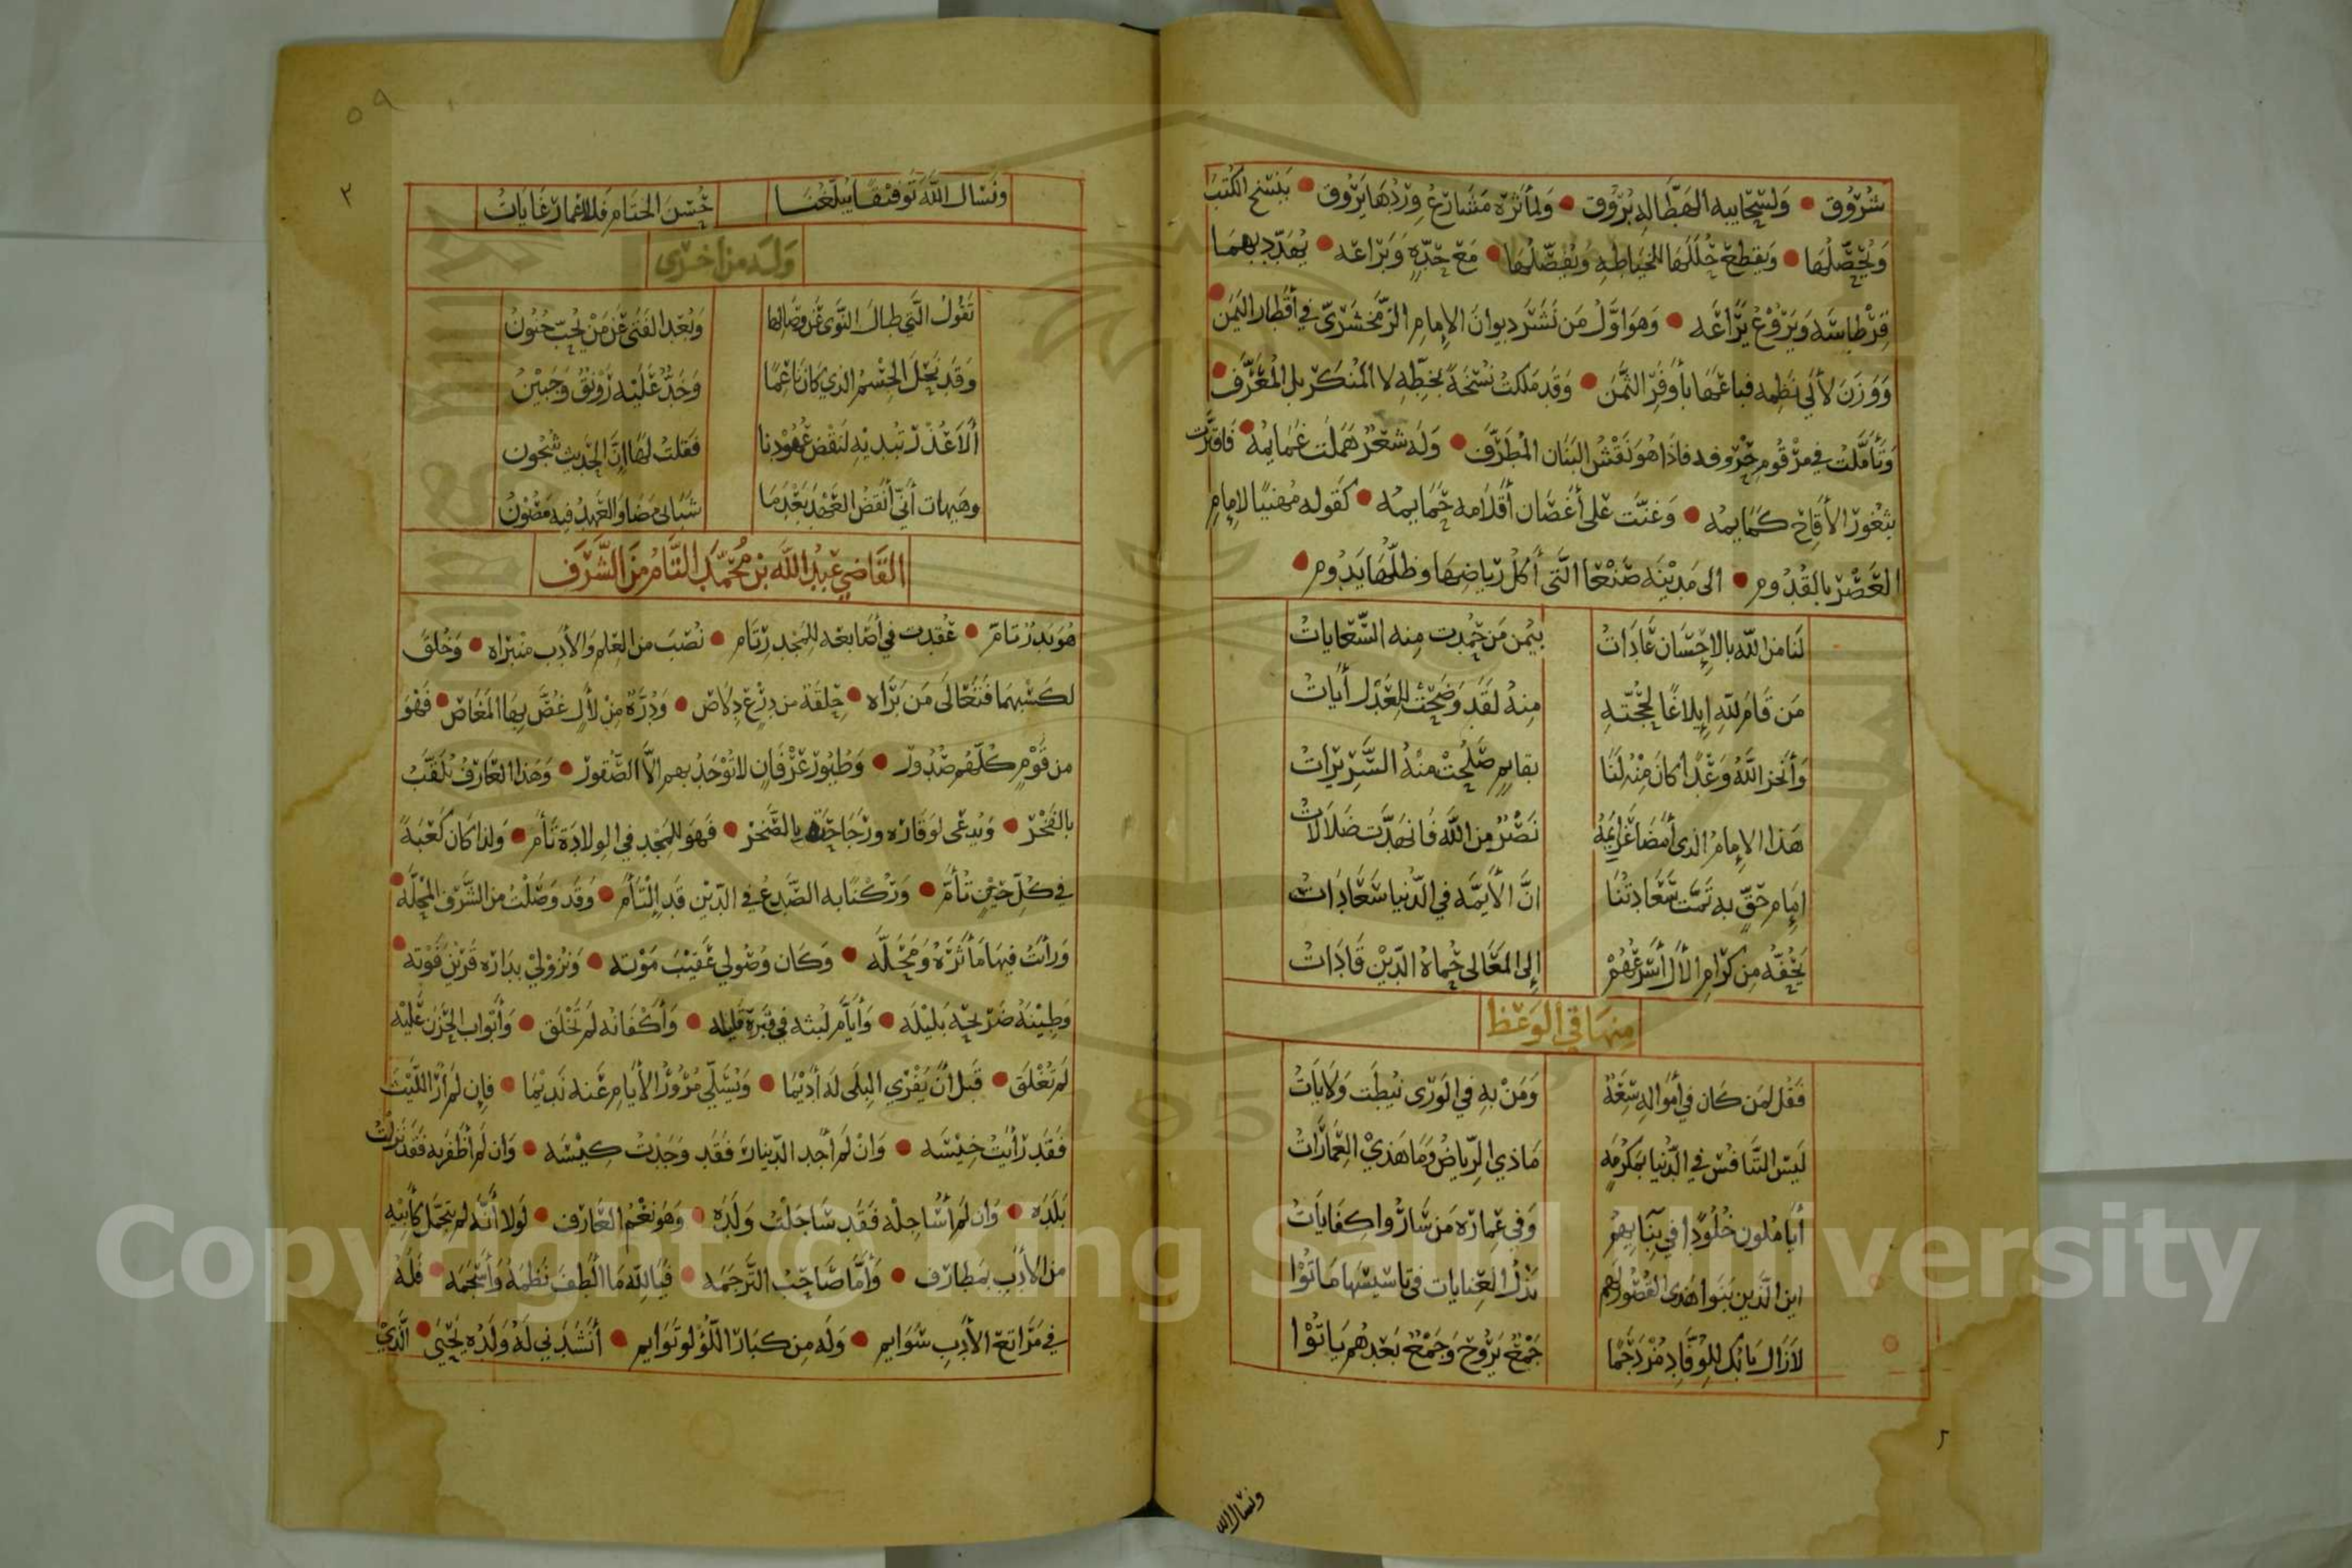 شروق • ولسحايبه الهطاله بروق • ولمأثره مشارع وردها يروق • ينسخ الكتب
ويحصلها • ويقطع حللها للخياطه ويفصلها • مع جده وبراعه • يهدد بهما
قرطاسه ويروع يراعه • وهو اول من نشر ديوان الإمام الزمخشري في أقطار اليمن •
ووزن لألي نظمه فباعها بأوفر الثمن • وقد ملكت نسخة بخطه لا المنكر بل المعرف •
وتأملت في مرقوم حروفه فاذا هو نقش البنان المطرف • وله شعر هملت غمايمه • فافترت
بثغور الأقاح كمايمه • وغنت على أغصان أقلامه حمايمه • كقوله مهنيا لإمام
العصر بالقدوم • الى مدينه صنعا التى أكل رياضها وظلها يدوم •
لنا من الله بالإحسان عادات بيمن من حمدت منه السعايات
من قام لله إبلاغا لحجته منه لقد وضحت للعدل أيات
وأنجز الله وعدا كان منه لنا بقايم صلحت منه السريرات
هذا الإمام الذى أمضا عزايمه نصر من الله فانهدت ضلالات
امام حق به تمت سعادتنا ان الأيمه في الدنيا سعادات
يحفه من كرام الأل أسرعهم إلى المعالى حماة الدين قادات
منها في الوعظ
فقل لمن كان في أمواله سعة ومن به في الورى نيطت ولايات
ليس التنافس في الدنيا بمكرمه ماذي الرياض وما هذي العمارات
أيأملون خلودا في بنايهم وفي عماره من ساروا كفايات
اين الذين بنوا هذى القصور لهم بذل العنايات في تاسيسها ماتوا
لازال بابك للوفاد مزدحما جمع يروح وجمع بعدهم ياتوا
ونسال الله
٥٩
٢
ونسال الله توفيقا يبلغنا حسن الختام فللاعمار غايات
وله من اخرى
تقول التي طال النوى عن وصالها وبعد الفتى عن من يحب جنون
وقد نحل الجسم الذي كان ناعما وخد عليه رونق وجبين
ألا عذر تبديه لنقض عهودنا فقلت لها إن الحديث شجون
وهيهات أني أنقض العهد بعدما شبابى مضا والعهد فيه مصون
القاضي عبد الله بن محمد التام من الشرف
هو بدر تام • عقدت في أصابعه للمجد رتام • نصب من العلم والأدب منبراه • وخلق
لكسبهما فتعالى من براه • حلقة من درع دلاص • ودرة من لأل غص بها المغاص • فهو
من قوم كلهم صدور • وطيور عرفان لا توجد بهم الا الصقور • وهذا العارف يلقب
بالفخر • ويدعى لوقاره ورجاحته بالصخر • فهو للمجد في الولادة تأم • ولذا كان كعبة
في كل حين تأم • وركنا به الصدع في الدين قد التأم • وقد وصلت من الشرف المحله •
ورأت فيها مأثره ومحله • وكان وصولي عقيب موته • ونزولي بداره قرين فوته •
وطينه ضريحه بليله • وأيام لبثه في قبره قليله • وأكفانه لم تخلق • وأبواب الحزن عليه
لم تغلق • قبل ان يفري البلى له أديما • ويسلي مرور الأيام عنه نديما • فإن لم أر الليث
فقد رأيت خيسه • وان لم أجد الدينار فقد وجدت كيسه • وان لم أظفر به فقد نزلت
بلده • وان لم أساجله فقد ساجلت ولده • وهو نعم العارف • لولا أنه لم يتجمل كأبيه
من الأدب بمطارف • وأما صاحب الترجمه • فيا لله ما الطف نظمه وأسجمه • فله
في مراتع الأدب سوايم • وله من كبار اللؤلو توايم • أنشدني له ولده يحيى • الذي